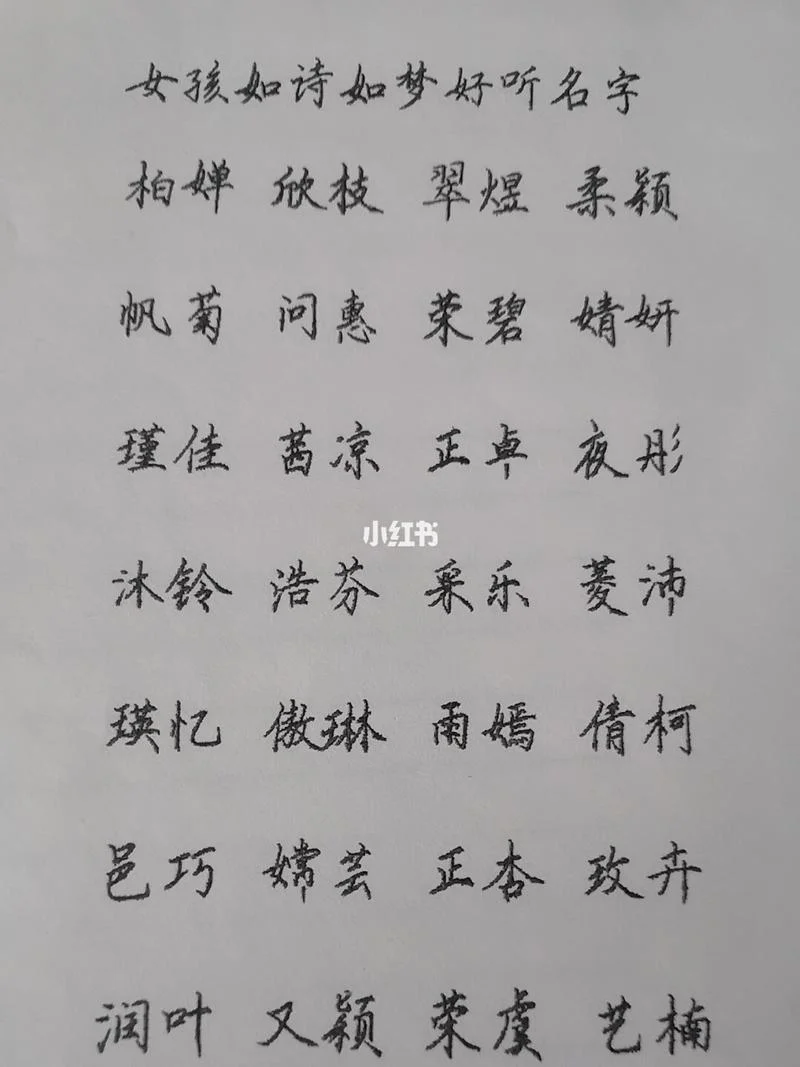 女孩如诗如梦好听名字
柏婵 欣枝 翠煜 柔颖
帆菊 问惠 荣碧 婧妍
瑾佳 茜凉 正卓 夜彤
小红书
沐铃 浩芬 采乐 菱沛
瑛忆 傲琳 雨嫣 倩柯
邑巧 嫦芸 正杏 玫卉
润叶 又颖 荣虞 艺楠